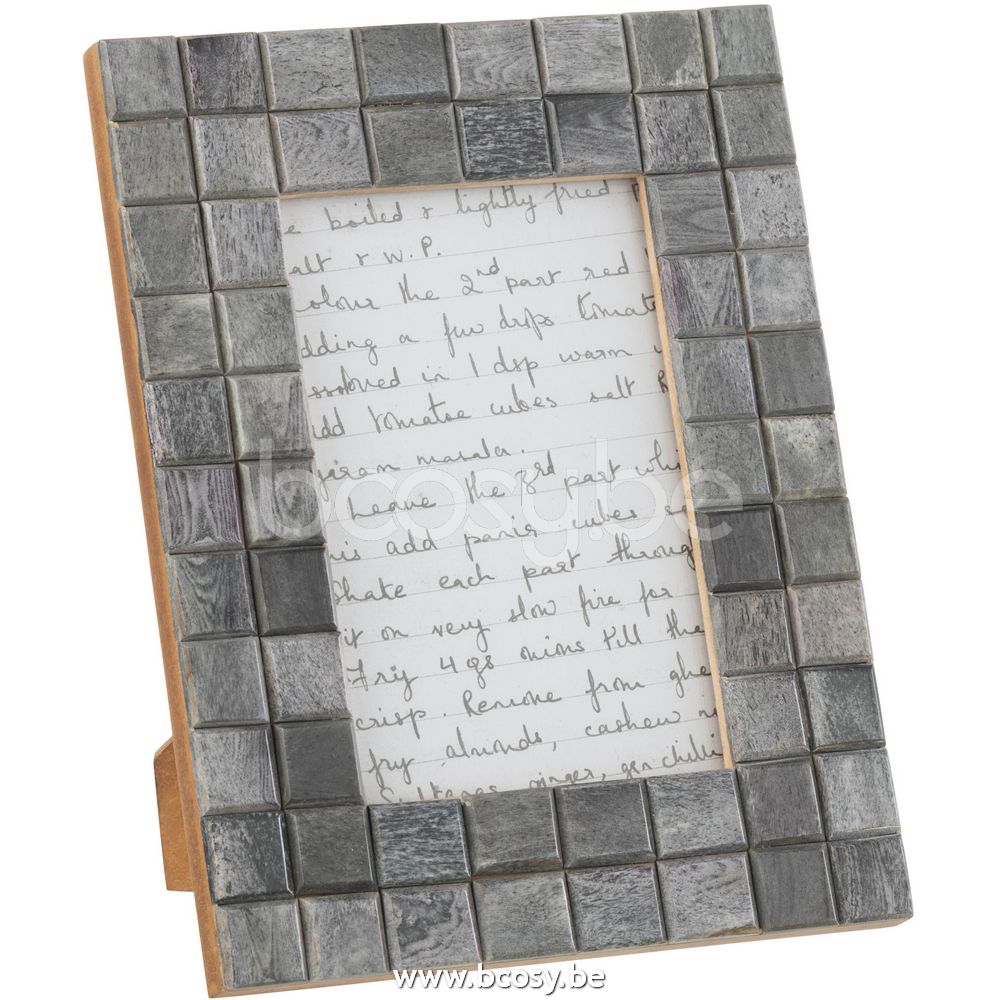 e boiled & lightly fried
alt & W.P.
olour the 2nd part red
dding a few drops tomato
ssolved in 1 dsp warm
add tomatoe cubes salt
garam masala.
Leave the 3rd part whi
his add paris cubes sa
Shake each part throug
it on very slow fire for
Fry 4 gs onions till tha
crisp. Remove from ghe
fry almonds, cashew n
Sultanas, ginger, gen chilli
bcosy.be
www.bcosy.be